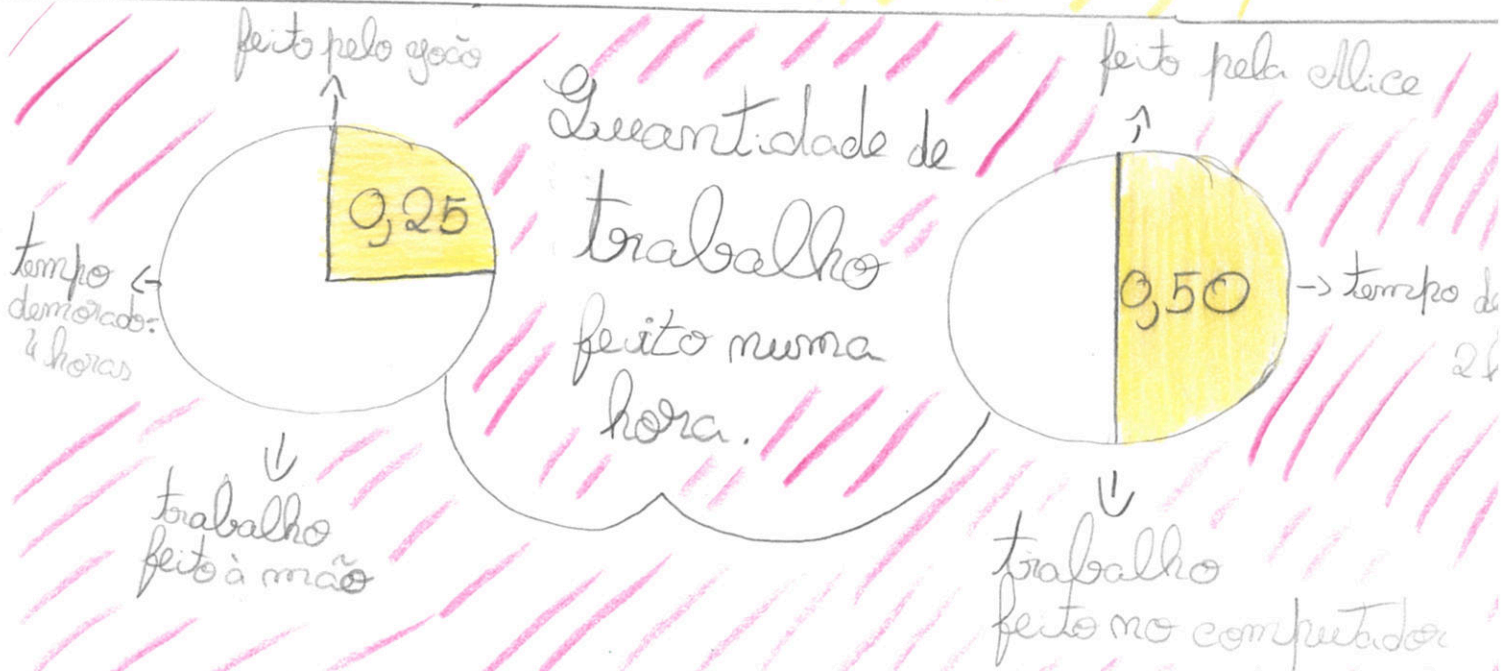 feito pelo João
0,25
tempo
demorado:
4 horas
trabalho
feito à mão
Quantidade de
trabalho
feito numa
hora.
feito pela Alice
0,50
tempo de
2 h
trabalho
feito no computador